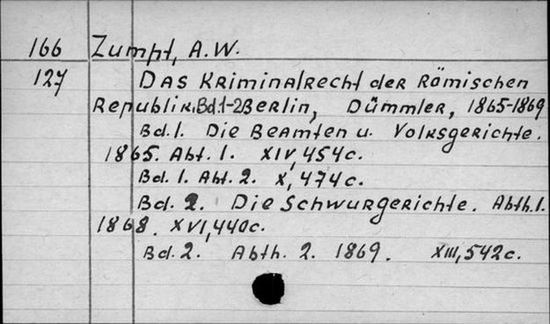 166 Zumpt, A.W.
127 Das Kriminalrecht der Römischen
Republik. Bd.1-2 Berlin, Dümmler, 1865-1869
Bd.1. Die Beamten u. Volksgerichte.
1865. Abt. 1. XIV, 454 c.
Bd. 1. Abt. 2. X, 474 c.
Bd. 2. Die Schwurgerichte. Abth. 1.
1868. XVI, 440 c.
Bd. 2. Abth. 2. 1869. XIII, 542 c.